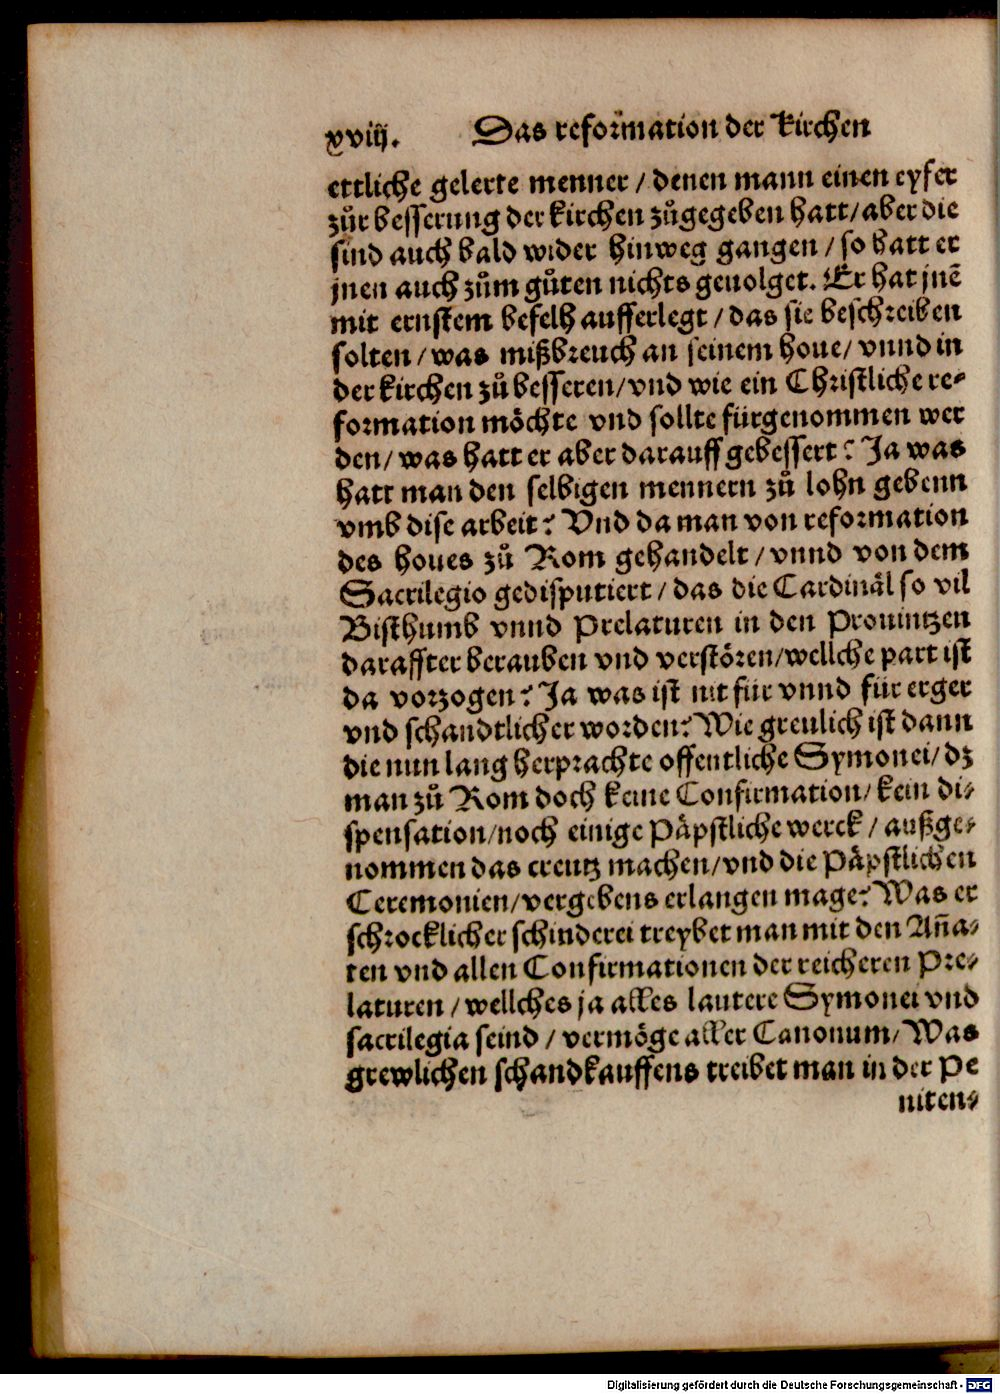 xviij. Das reformation der kirchen
ettliche gelerte menner / denen mann einen eyfer
zůr besserung der kirchen zůgegeben hatt / aber die
sind auch bald wider hinweg gangen / so hatt er
jnen auch zům gůten nichts geuolget. Er hat jnē
mit ernstem befelh aufferlegt / das sie beschreiben
solten / was mißbreuch an seinem houe / vnnd in
der kirchen zů besseren / vnd wie ein Christliche re⸗
formation möchte vnd sollte fürgenommen wer
den / was hatt er aber darauff gebessert? Ja was
hatt man den selbigen mennern zů lohn gebenn
vmb dise arbeit? Vnd da man von reformation
des houes zů Rom gehandelt / vnnd von dem
Sacrilegio gedisputiert / das die Cardinäl so vil
Bisthumb vnnd Prelaturen in den Prouintzen
daraffter berauben vnd verstören / wellche part ist
da vorzogen? Ja was ist nit für vnnd für erger
vnd schandtlicher worden? Wie greulich ist dann
die nun lang herprachte offentliche Symonei / dz
man zů Rom doch keine Confirmation / kein di⸗
spensation / noch einige Päpstliche werck / außge⸗
nommen das creutz machen / vnd die Päpstlichen
Ceremonien / vergebens erlangen mage? Was er
schrocklicher schinderei treybet man mit den Aña⸗
ten vnd allen Confirmationen der reicheren Pre⸗
laturen / wellches ja alles lautere Symonei vnd
sacrilegia seind / vermöge aller Canonum / Was
grewlichen schandkauffens treibet man in der Pe
niten⸗
Digitalisierung gefördert durch die Deutsche Forschungsgemeinschaft - DFG